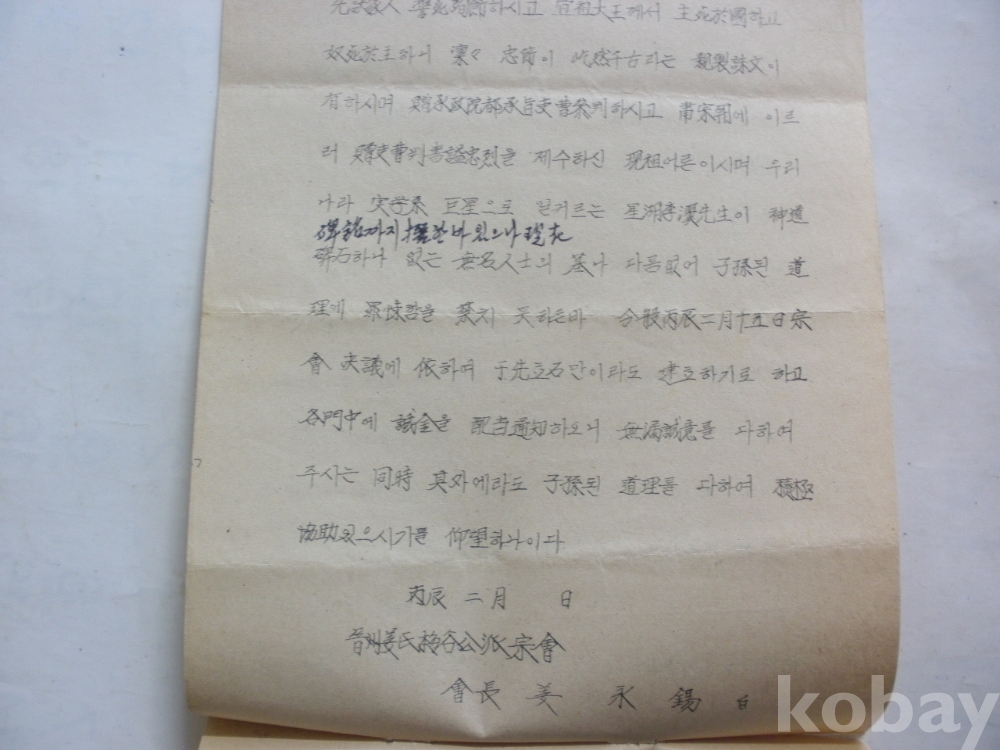 하시고 宣祖大王께서 主死於國하고
奴死於主하니 凜々 忠節이 千古라는 親製誄文이
有하시며 贈承政院都承旨吏曹參判하시고 肅宗朝에 이르
러 贈吏曹判書諡忠烈을 제수하신 现祖어른이시며 우리
나라 实学系 巨星으로 일커르는 星湖李瀷先生이 神道
碑銘까지 撰한바 있으나 现在
碑石하나 없는 無名人士의 墓나 다름없어 子孫된 道
理에 罪悚함을 禁치 못하온바 今般丙辰二月十五日宗
會 决議에 依하여 于先立石만이라도 建立하기로 하고
各門中에 誠金을 配当通知하오니 無漏誠意를 다하여
주시는 同時 其外에라도 子孫된 道理를 다하여 積極
協助있으시기를 仰望하나이다
丙辰 二月 日
晋州姜氏梅谷公派宗會
會長 姜 永 錫 白
kobay